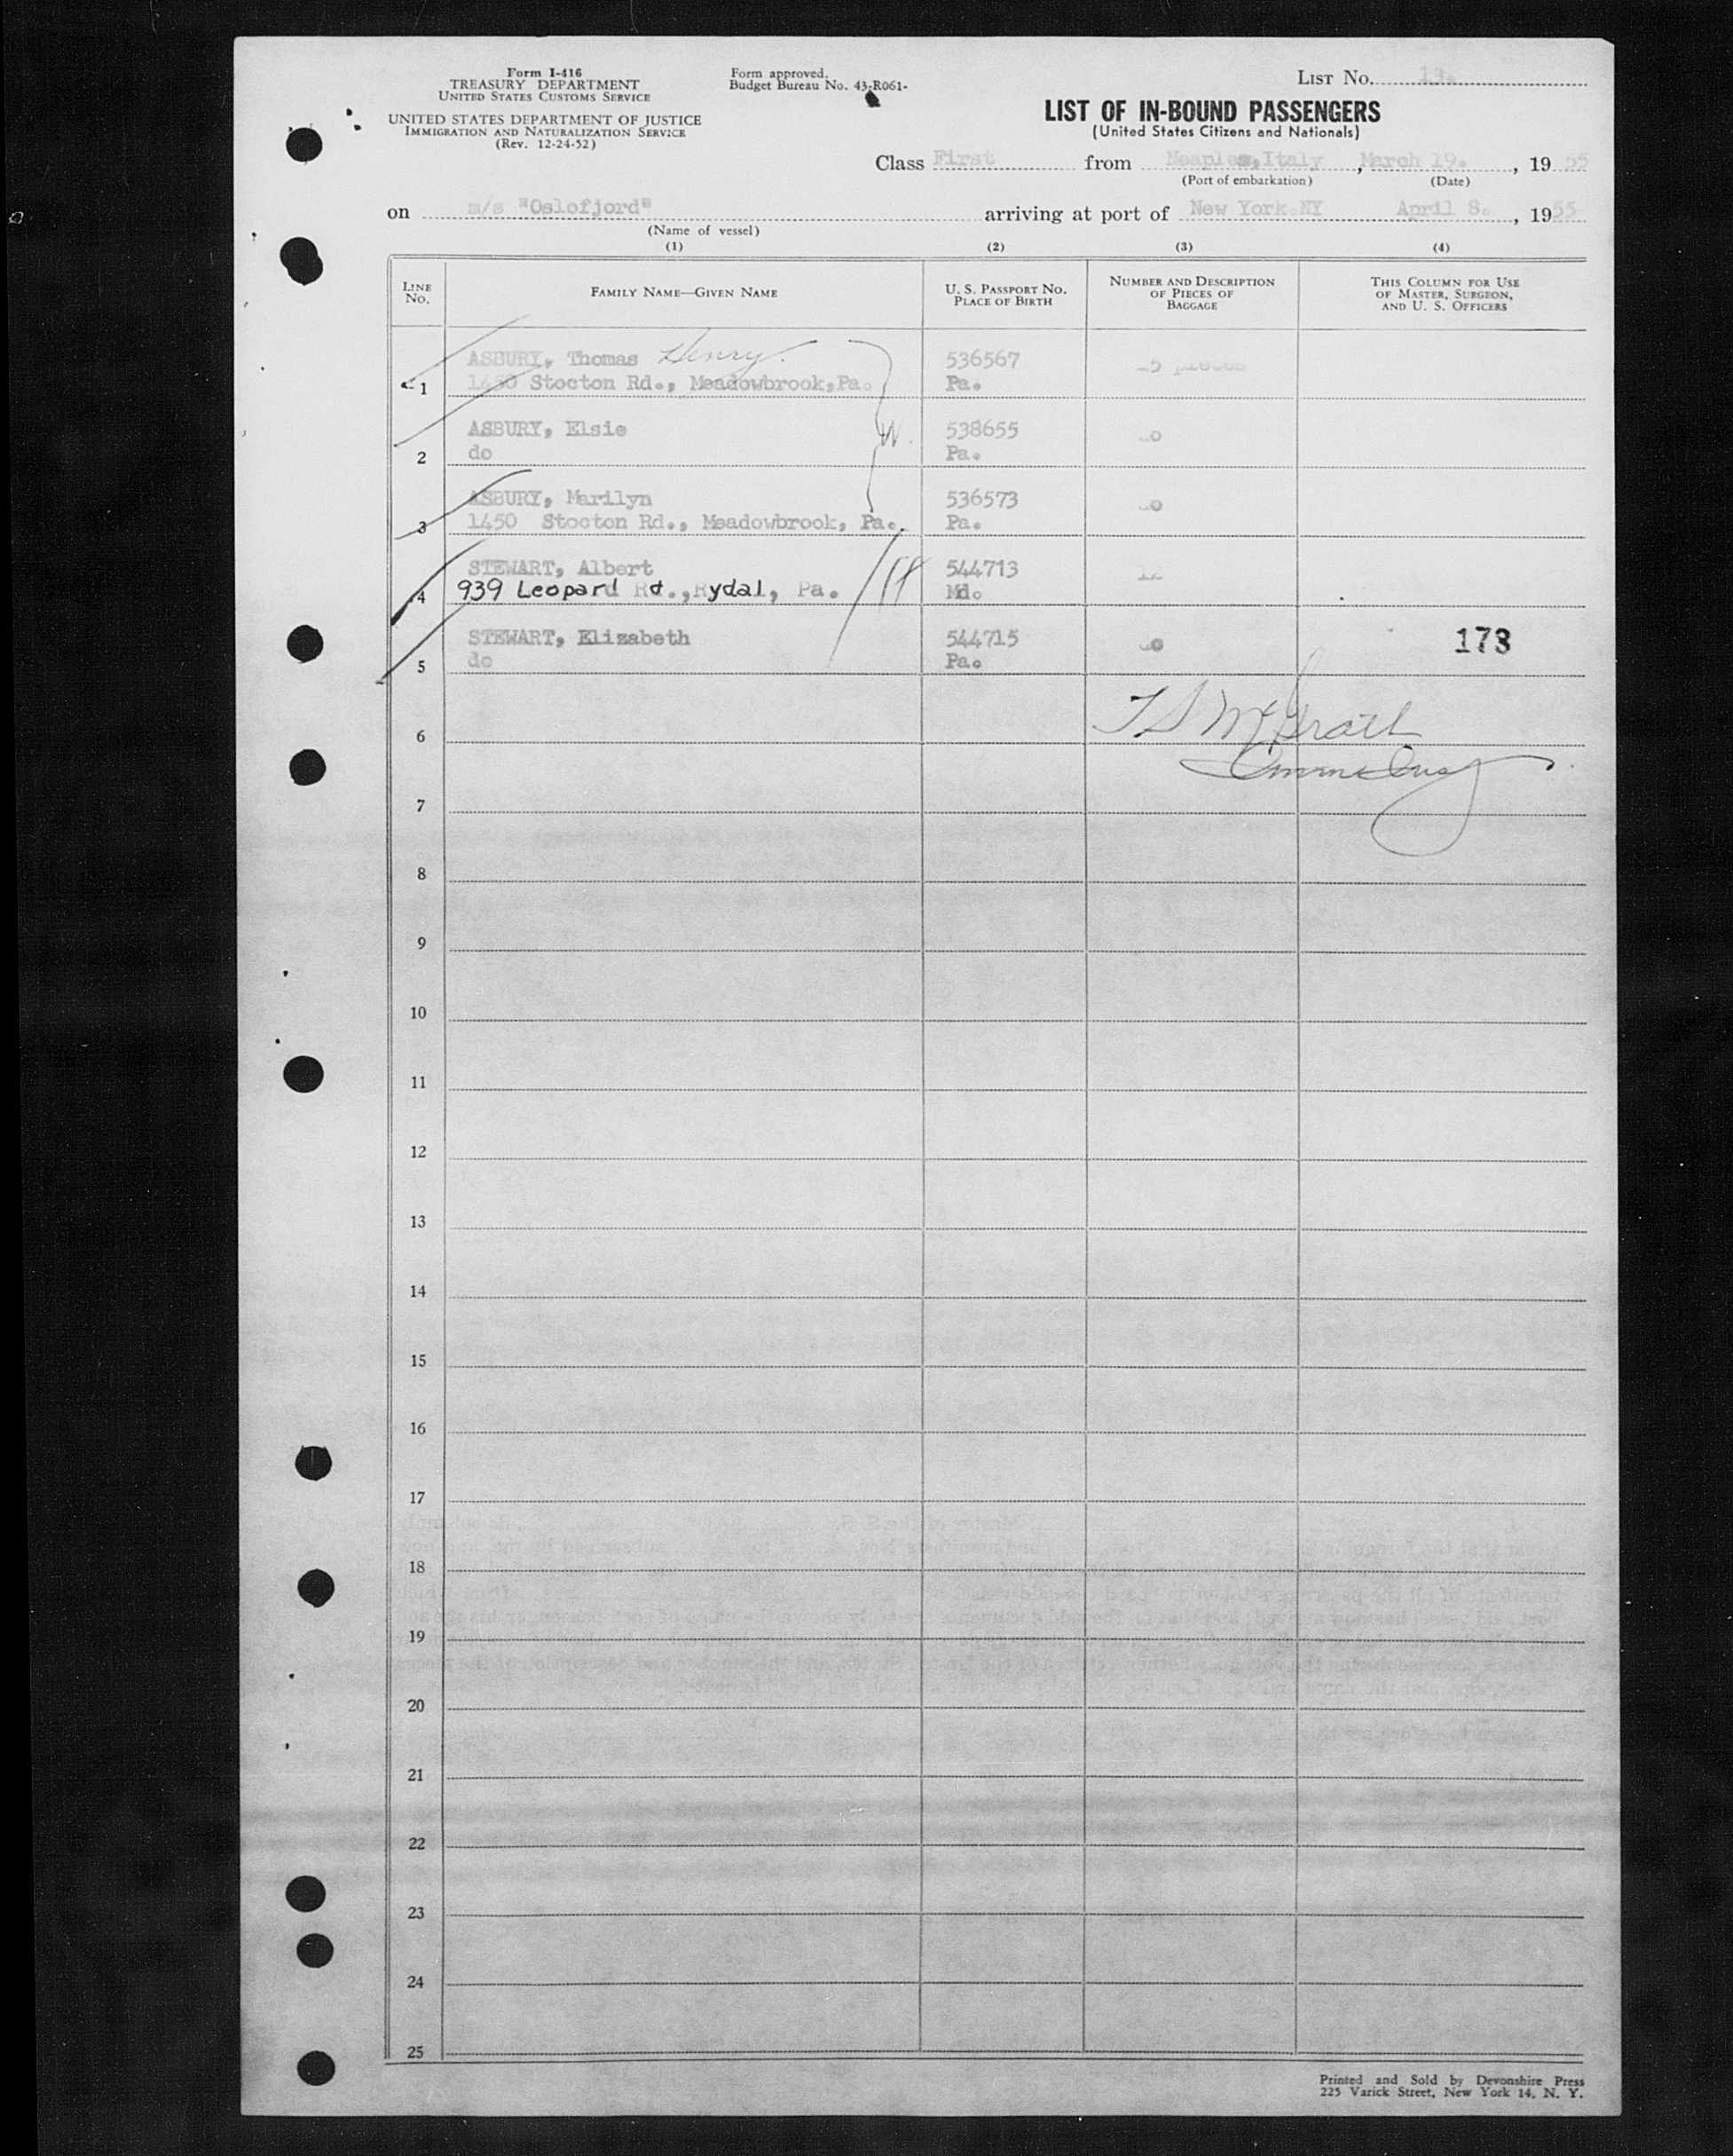 Form I-416
TREASURY DEPARTMENT
UNITED STATES CUSTOMS SERVICE
UNITED STATES DEPARTMENT OF JUSTICE
IMMIGRATION AND NATURALIZATION SERVICE
(Rev. 12-24-52)
Form approved.
Budget Bureau No. 43-R061-
LIST NO. 13.
LIST OF IN-BOUND PASSENGERS
(United States Citizens and Nationals)
Class First from Neaples, Italy, March 19., 1955
(Port of embarkation) (Date)
on m/s "Oslofjord" arriving at port of New York NY April 8., 1955
(Name of vessel)
(1) (2) (3) (4)
LINE NO. FAMILY NAME—GIVEN NAME U. S. PASSPORT NO. PLACE OF BIRTH NUMBER AND DESCRIPTION OF PIECES OF BAGGAGE THIS COLUMN FOR USE OF MASTER, SURGEON, AND U. S. OFFICERS
ASBURY, Thomas Henry. 536567 pieces
1 Stocton Rd., Meadowbrook, Pa. Pa.
ASBURY, Elsie 538655
2 do Pa.
ASBURY, Marilyn 536573
3 1450 Stocton Rd., Meadowbrook, Pa. Pa.
STEWART, Albert 544713
4 939 Leopard Rd., Rydal, Pa. Md.
STEWART, Elizabeth 544715 173
5 do Pa.
6 McGrath
7
8
9
10
11
12
13
14
15
16
17
18
19
20
21
22
23
24
25
Printed and Sold by Devonshire Press
225 Varick Street, New York 14, N. Y.